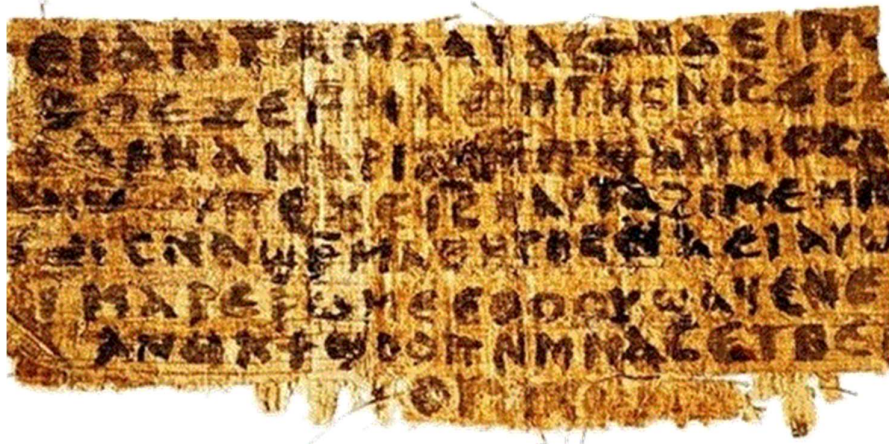 ⲉⲓⲁⲛⲧⲁⲙⲁⲁⲩⲁⲥϯⲛⲁⲉⲓⲡ
ⲡⲉϫⲉⲙⲙⲁⲑⲏⲧⲏⲥⲛⲓⲥϫⲉⲥ
ⲁⲣⲛⲁⲙⲁⲣⲓⲁⲙ
ⲡⲉϫⲉⲓⲥⲛⲁⲩⲧⲁϩⲓⲙⲉⲙⲛ
ⲥⲛⲁϣⲣⲙⲁⲑⲏⲧⲏⲥⲛⲁⲉⲓⲁⲩⲱ
ⲓⲙⲁⲣⲉⲣⲱⲙⲉⲉⲑⲟⲟⲩϣⲁϥⲉⲛⲉ
ⲁⲛⲟⲕϯϣⲟⲟⲡⲛⲙⲙⲁⲥⲉⲧⲃⲉⲡ